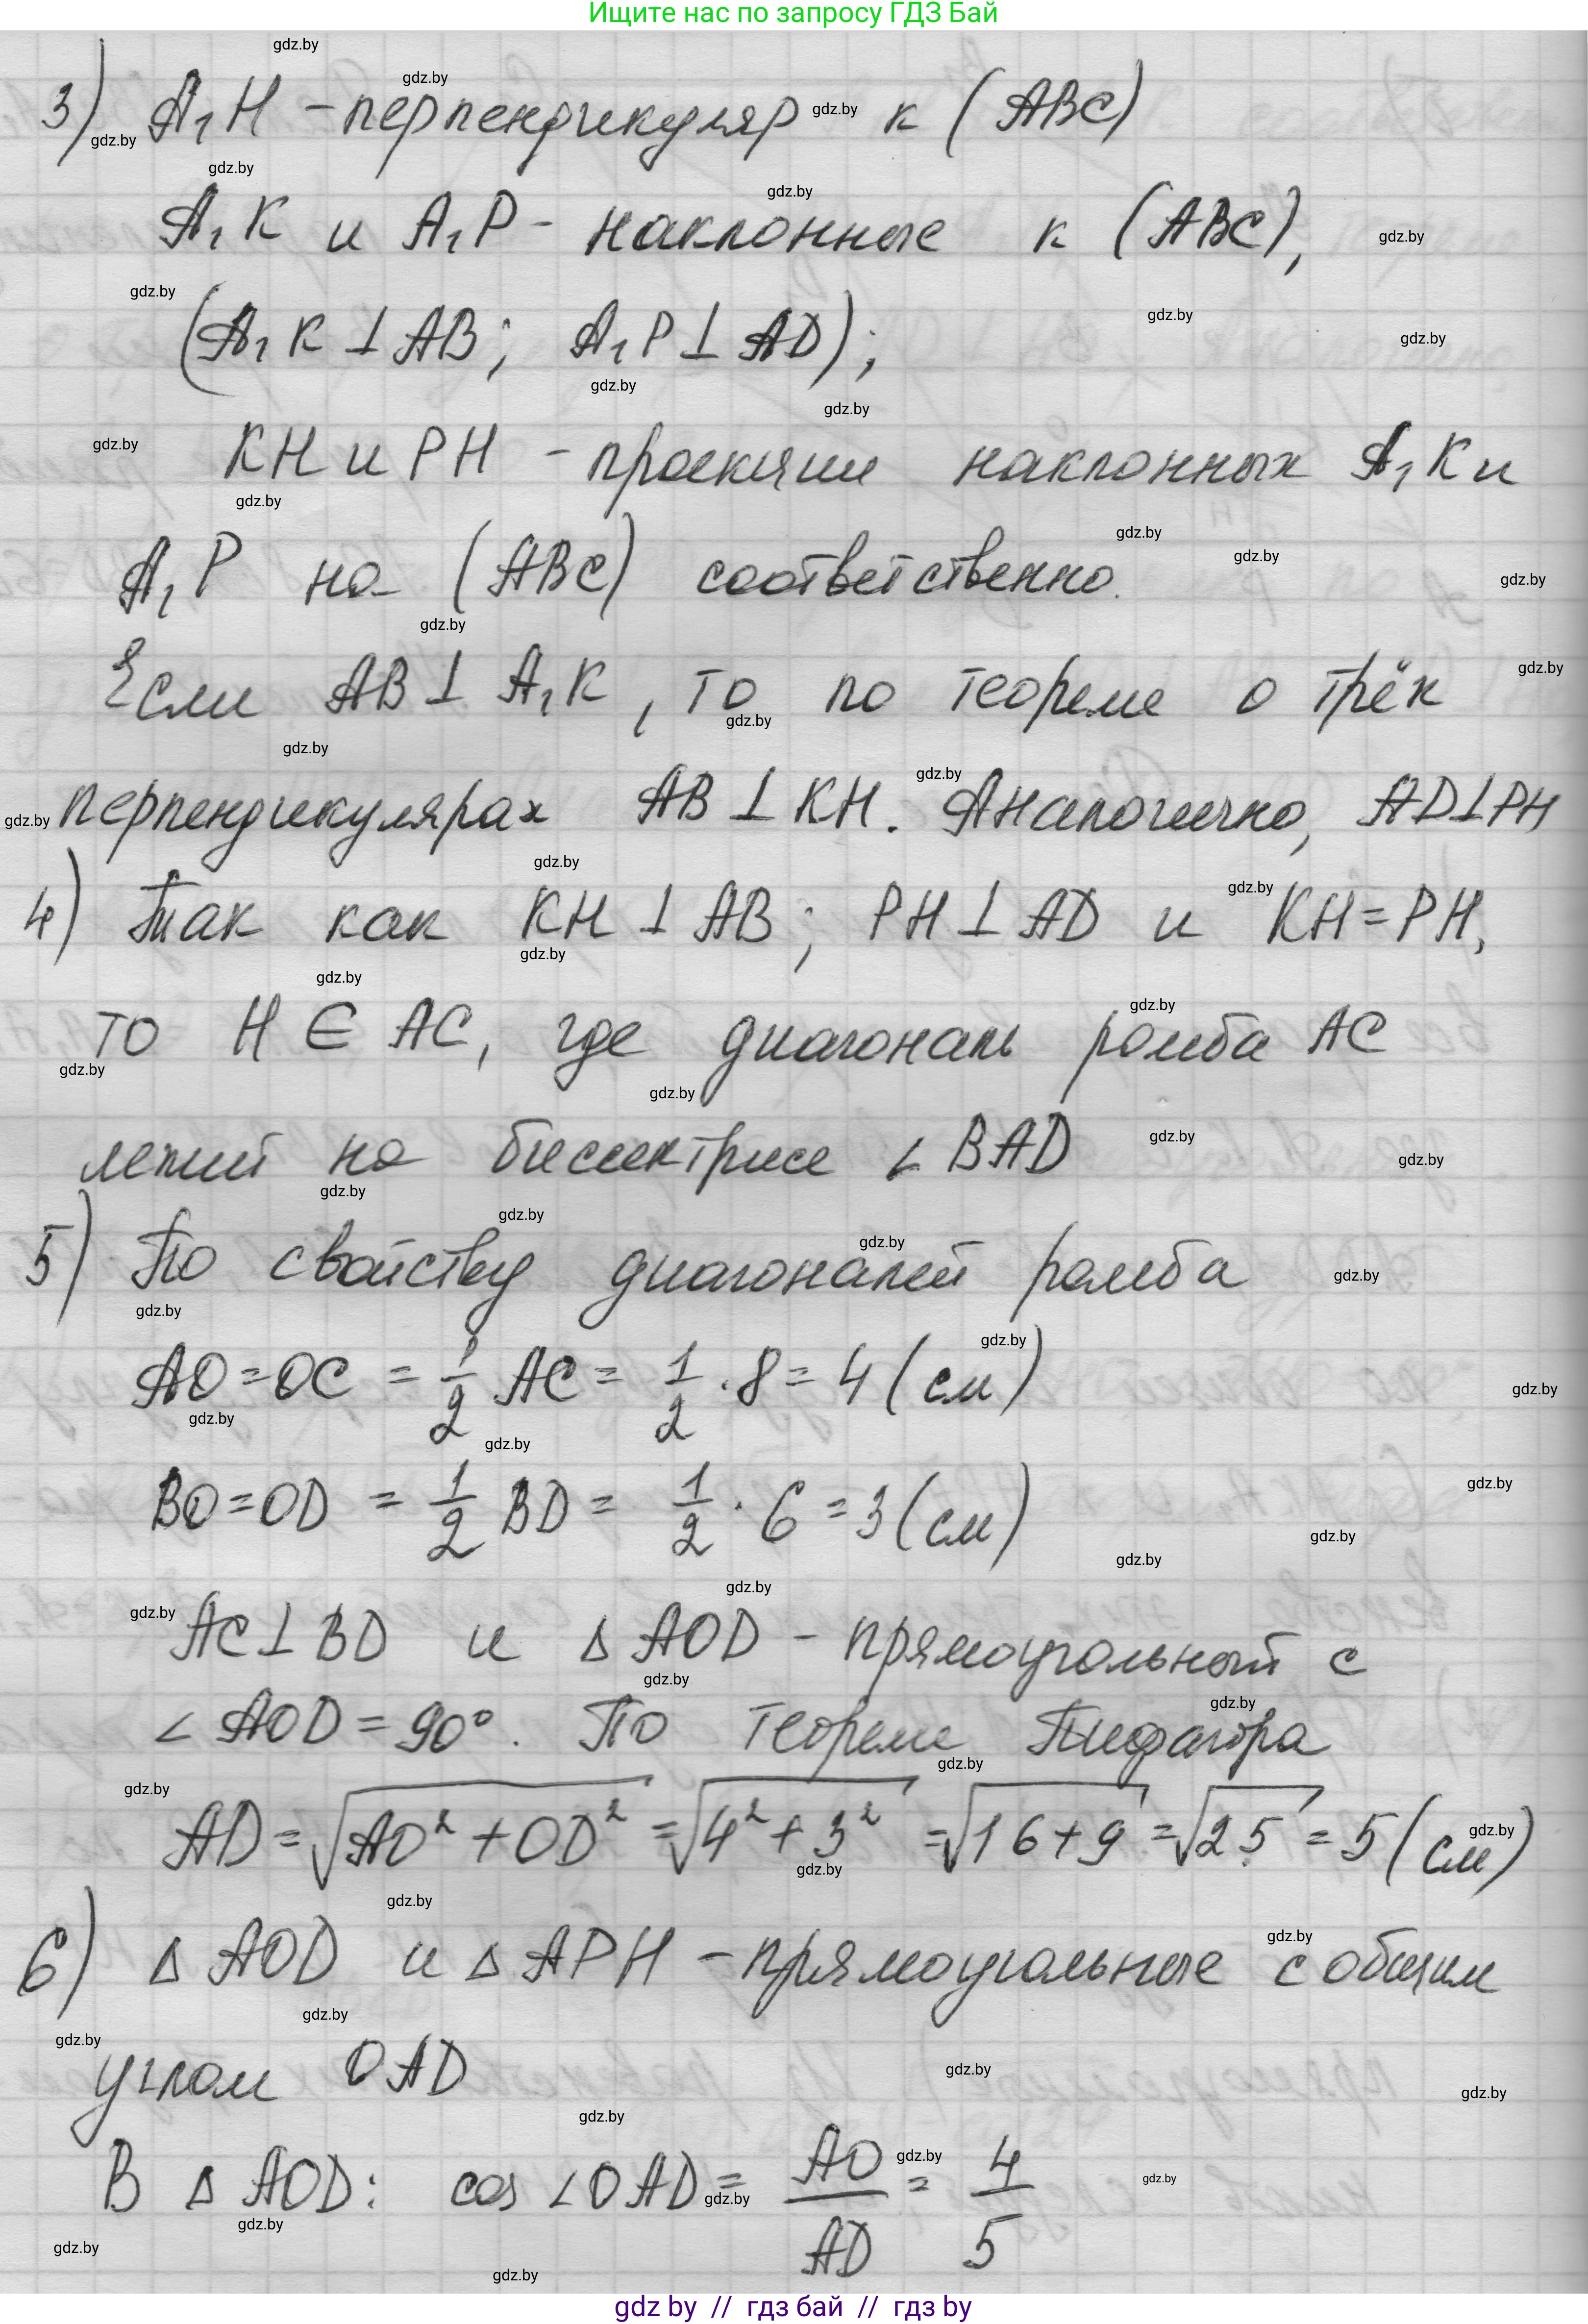 Ищите нас по запросу ГДЗ Бай
3) A₁H - перпендикуляр к (ABC)
A₁K и A₁P - наклонные к (ABC),
(A₁K ⊥ AB; A₁P ⊥ AD);
KH и PH - проекции наклонных A₁K и
A₁P на (ABC) соответственно.
Если AB ⊥ A₁K, то по теореме о трёх
перпендикулярах AB ⊥ KH. Аналогично, AD ⊥ PH
4) Так как KH ⊥ AB; PH ⊥ AD и KH = PH,
то H ∈ AC, где диагональ ромба AC
лежит на биссектрисе ∠BAD
5) По свойству диагоналей ромба
AO = OC = 1/2 AC = 1/2 · 8 = 4 (см)
BO = OD = 1/2 BD = 1/2 · 6 = 3 (см)
AC ⊥ BD и Δ AOD - прямоугольный с
∠AOD = 90°. По теореме Пифагора
AD = √(AO² + OD²) = √(4² + 3²) = √(16 + 9) = √25 = 5 (см)
6) Δ AOD и Δ APH - прямоугольные с общим
углом OAD
В Δ AOD: cos ∠OAD = AO/AD = 4/5
gdz by // гдз бай // гдз by